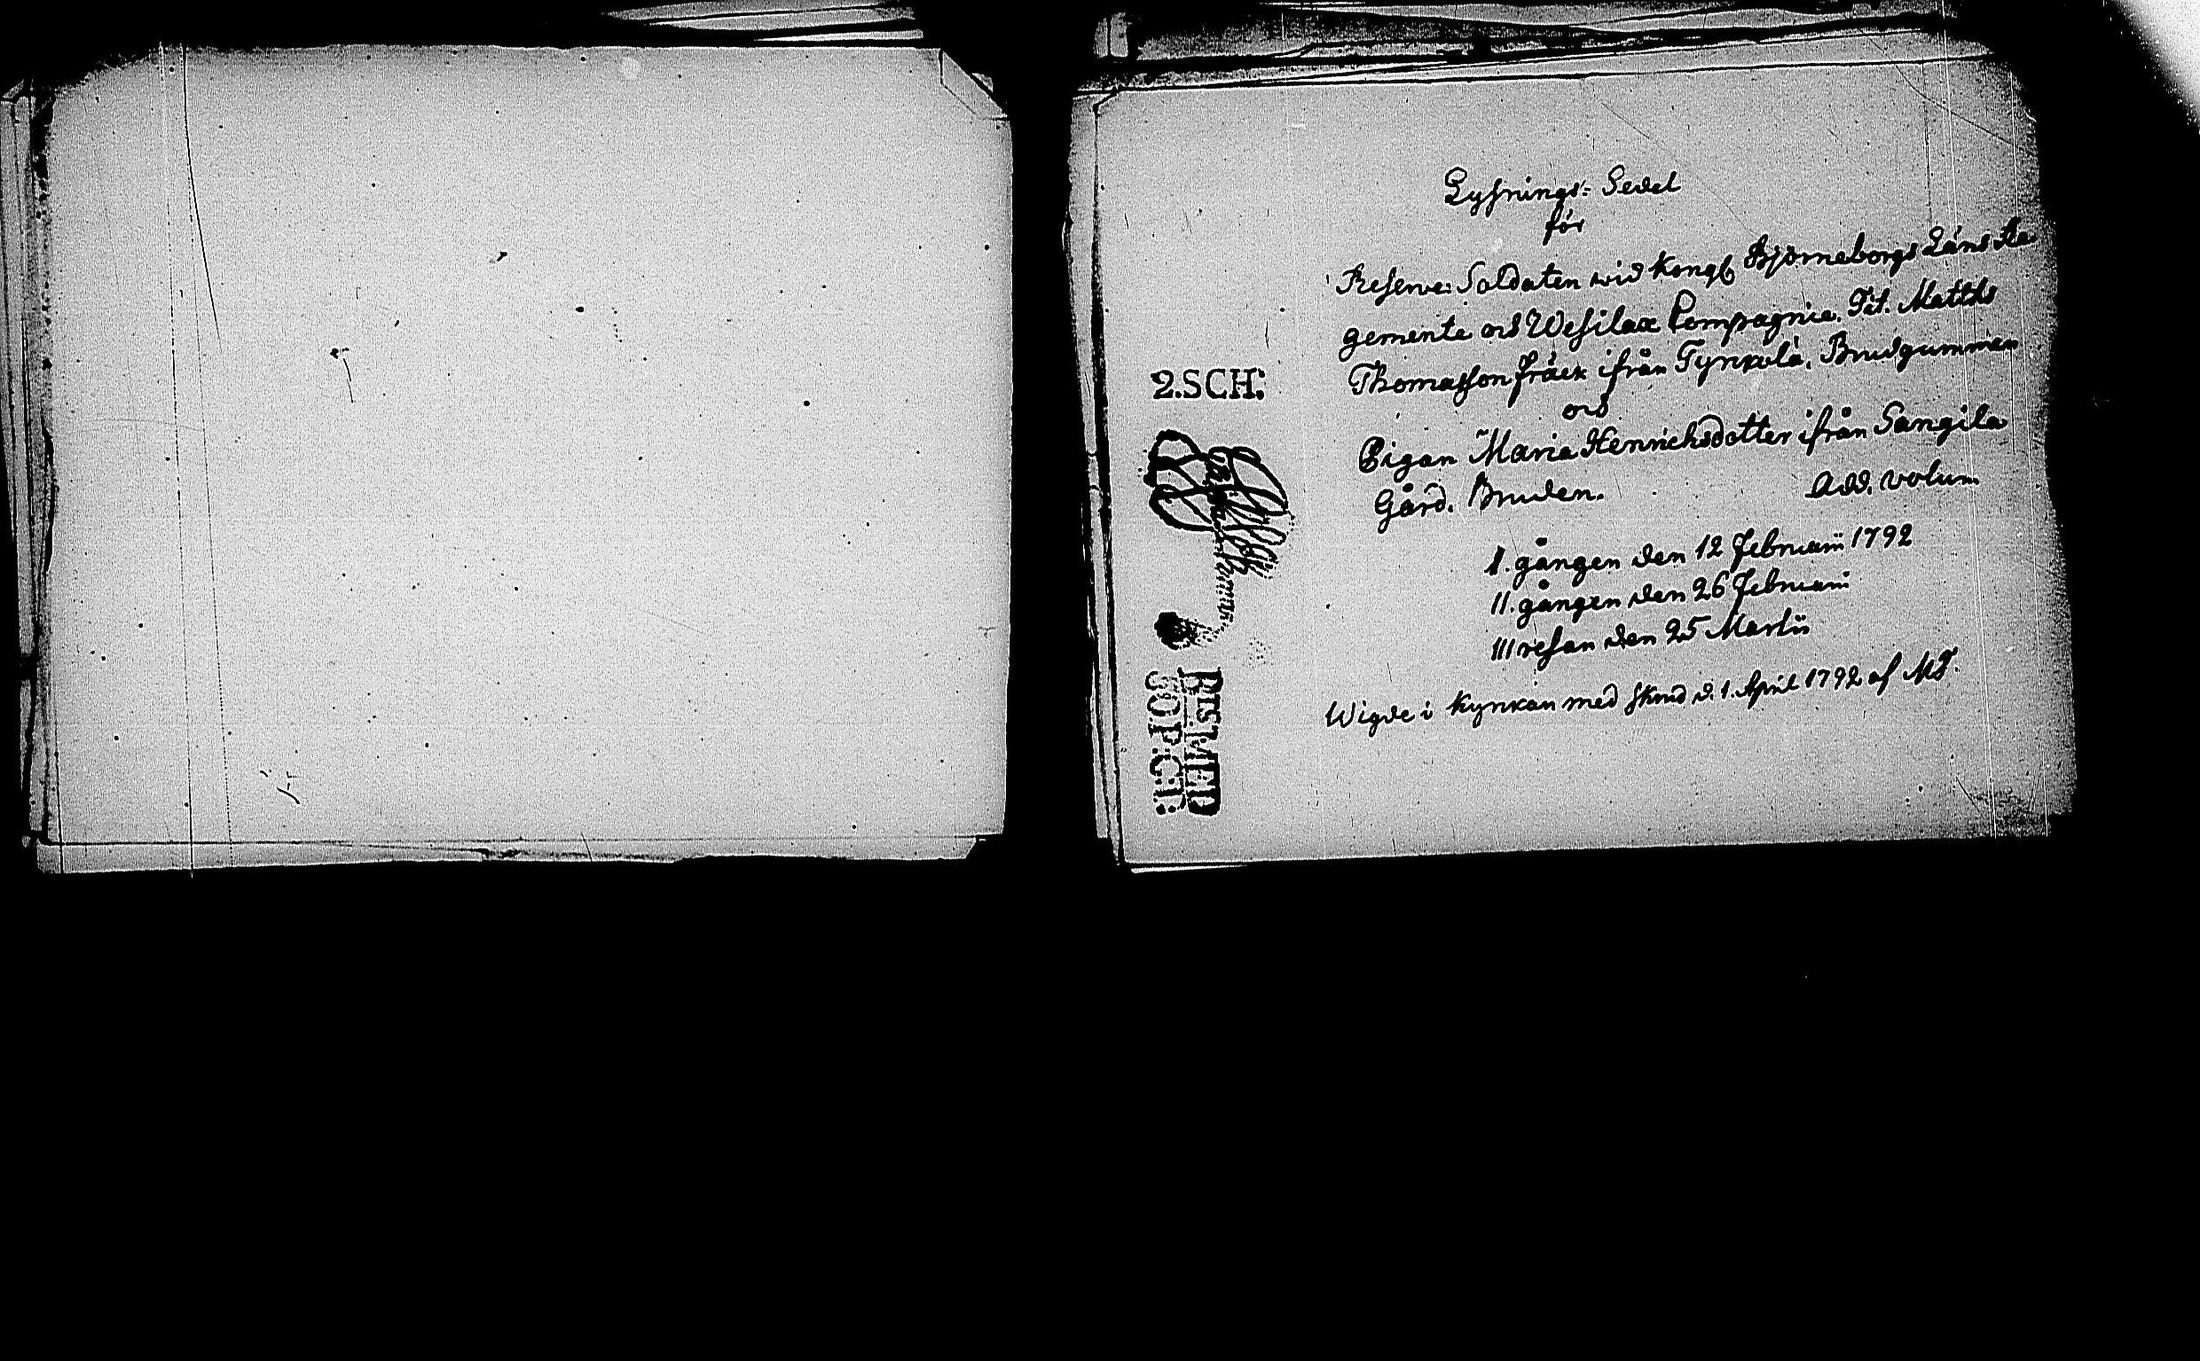 Lysnings: Sedel
för
Reserve: Soldaten wid Kongl Björneborgs Läns Re
gemente och Wesilax Compagnie. Tit. Matths
Thomasson fräck ifrån Tyrvolä. Brudgummen
och
Pigan Maria Henrichsdotter ifrån Sangila
Gård. Bruden.
Add. volum
I. gången den 12 Februarii 1792
II. gången den 26 Februarii
III resan den 25 Martii
Wigde i Kyrkan med skrud d. 1. April 1792 af
2.SCH: